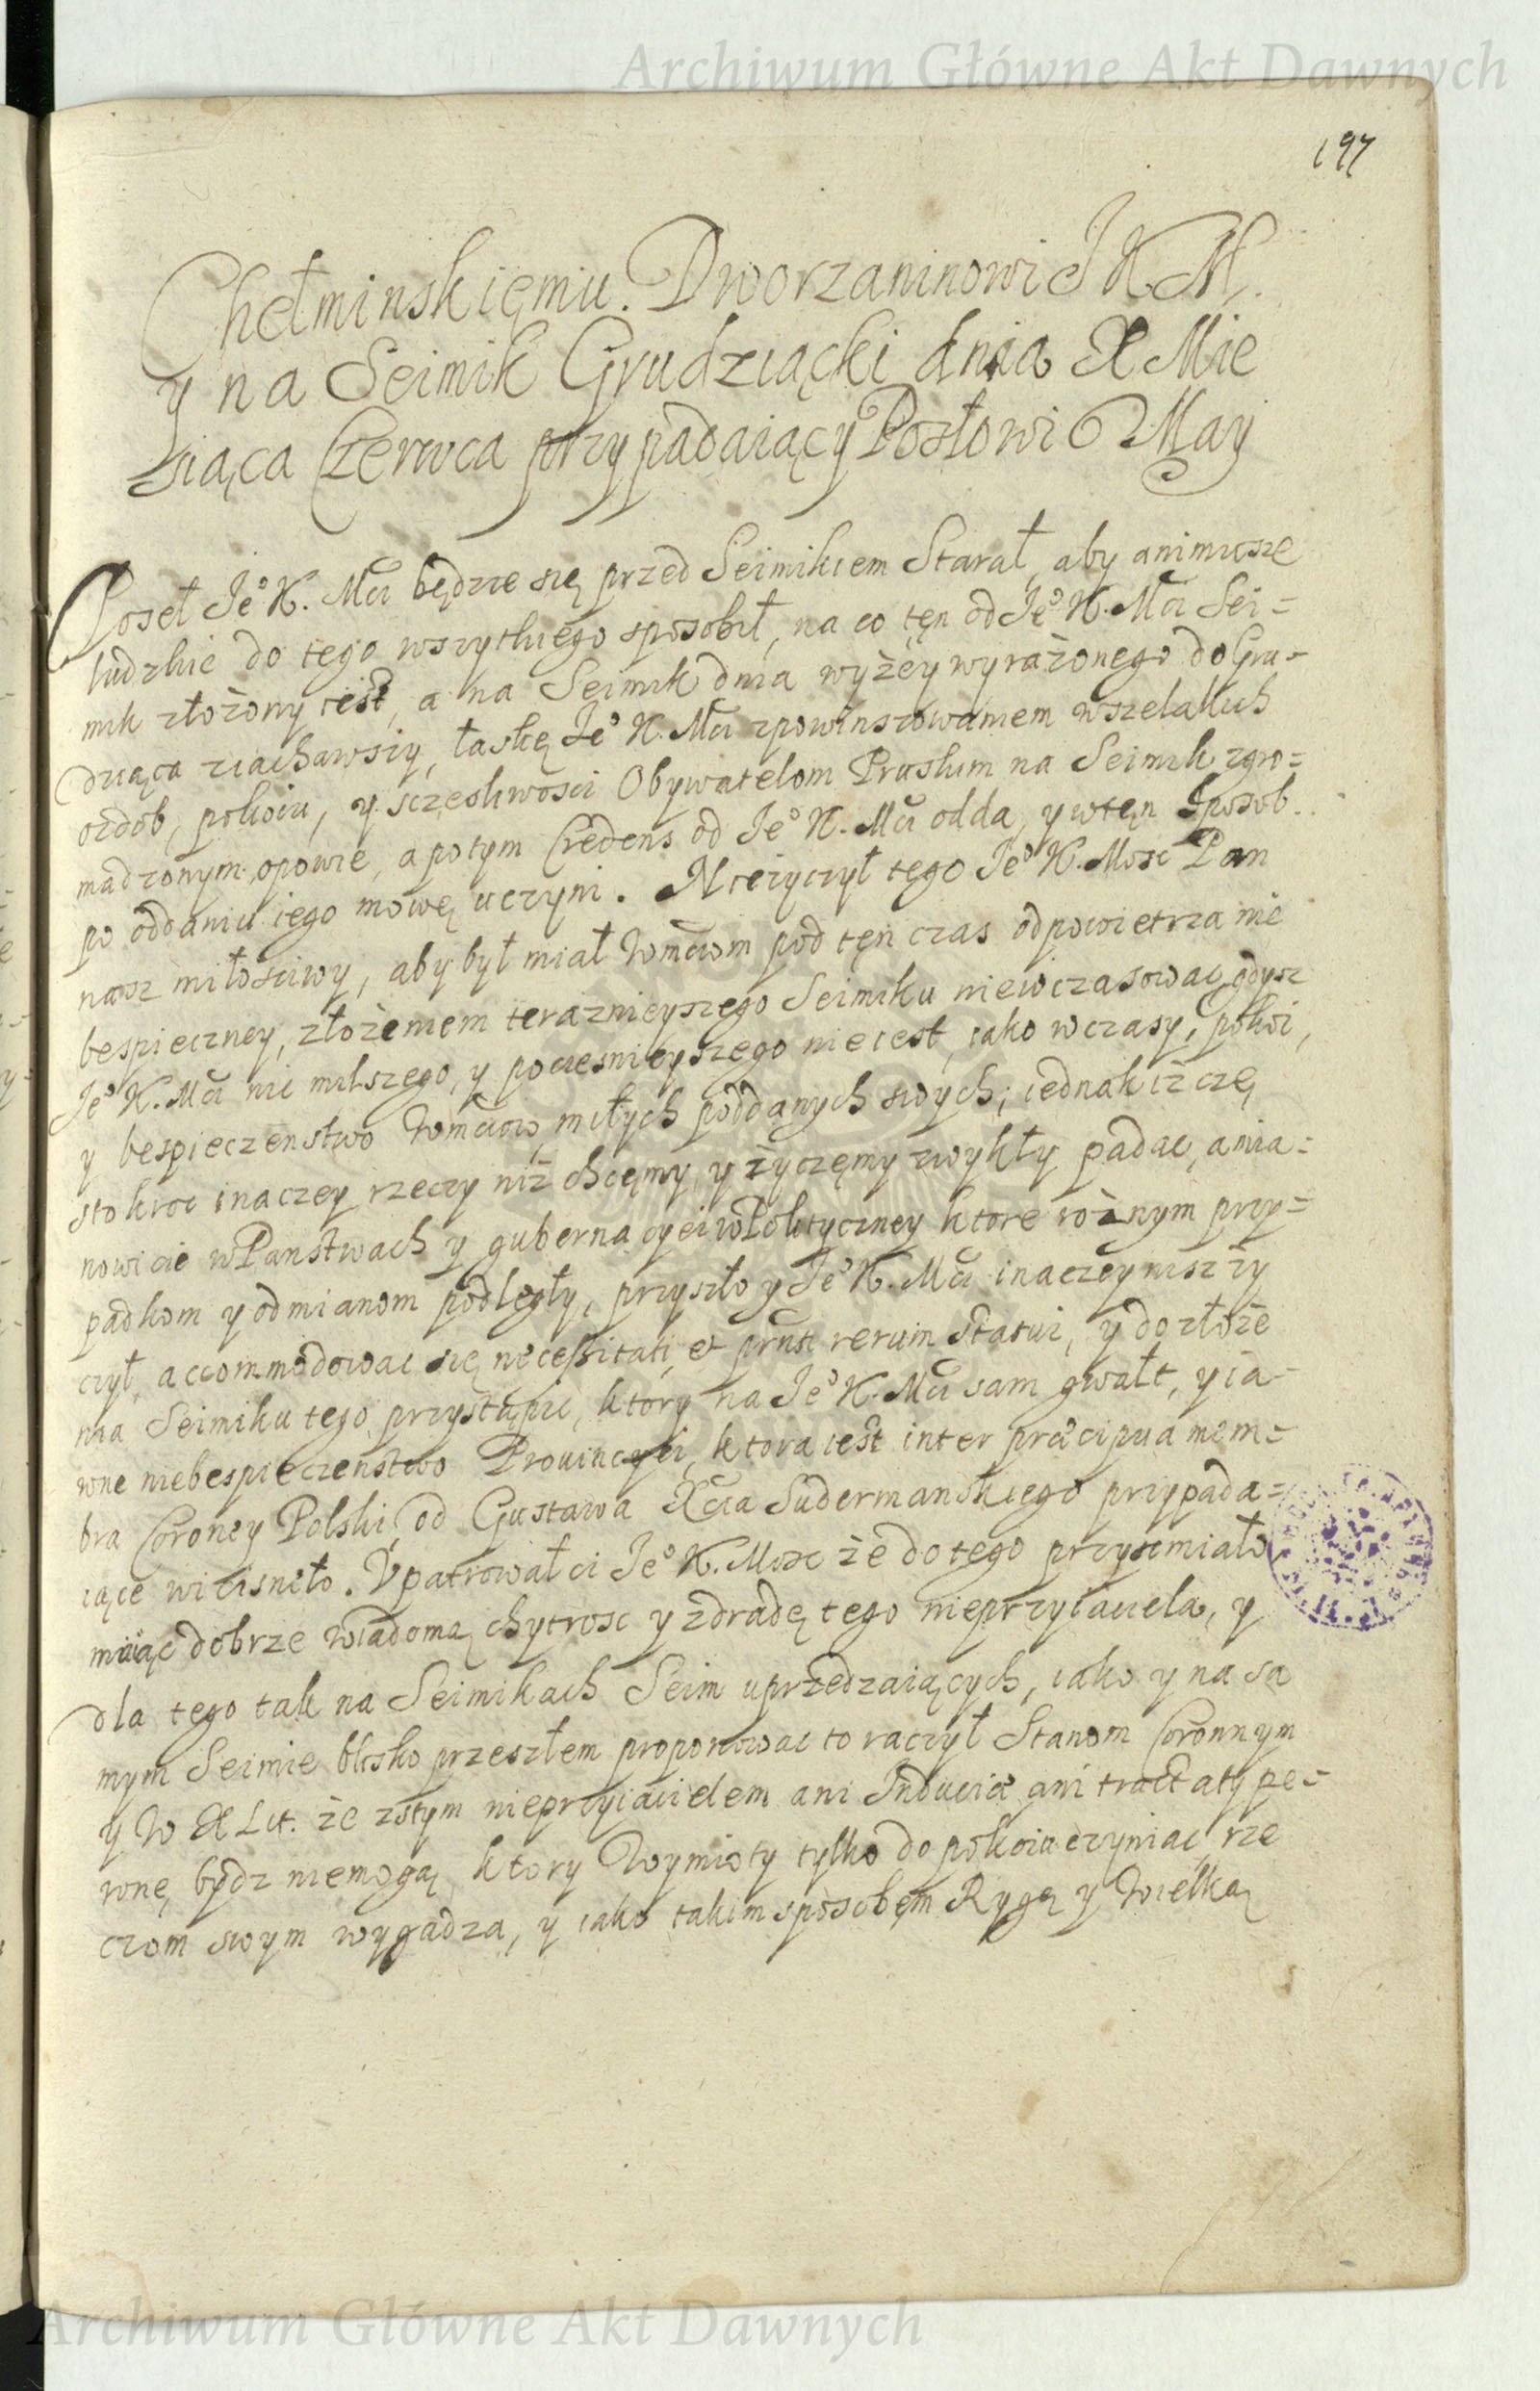 Archiwum Główne Akt Dawnych
197
Chełminskięmu. Dworzaninowi J K M.
y na Seimik Grudziącki dnia X Mie
siąca Czerwca przypadaiący Posłowi May
Poseł Je° K. Mci będzie się przed Seimikiem Starał, aby animusze
ludzkie do tego wszytkiego sposobił, na co tęn od Je° K. Mci Sei=
mik złożony iest, a na Seimik dnia wyżey wyrażonego do Gru=
dziąca ziachawszy, łaskę Je° K. Mci zpowinszowaniem wszelakich
ozdob, pokoiu, y sczęsliwosci Obywatelom Pruskim na Seimik zgro=
madzonym opowie, a potym Credens od Je° K. Mci odda, y wtęn Sposob
po oddaniu iego mowę uczyni. Nieżyczył tego Je° K. Mosc Pan
nasz miłosciwy, aby był miał Wmciom pod tęn czas odpowietrza nie
bespieczney, złożeniem teraznieyszego Seimiku niewczasowac, gdysz
Je° K. Mci nic milszego, y pociesnieyszego nie iest, iako wczasy, pokoi,
y bespieczenstwo Wmciow, miłych poddanych swych; iednak isz czę
stokroc inaczey rzeczy niż chcęmy y życzęmy zwykły padac, a mia=
nowicie w Panstwach y gubernacyei w Politycznej ktore rożnym przy=
padkom y odmianom podległy, przyszło y Je° K. Mci inaczey nisz ży
czył, accommodowac się necessitati et prnsi rerum statui, y do złoże
nia Seimiku tego przystąpic, ktory na Je° K. Mci sam gwałt, y ia=
wne niebespieczenstwo Prouincyei, ktora iest inter præcipua mem=
bra Coroney Polski, od Gustawa Xcia Sudermanskiego przypada=
iące wicisneło. Vpatrował ci Je° K. Mosc że do tego przyscmiało
maiąc dobrze wiadomą chytrosc y zdradę tego nieprzyiaciela, y
dla tego tak na Seimikach Seim uprzedzaiących, iako y na sa
mym Seimie blisko przeszłem proponowac to raczył Stanom Coronnym
y W X Lit. że stym nieprzyiacielem ani Induciæ ani tractaty pe=
wne, bydz niemogą, ktory Wymioty tylko do pokoiu czyniac, rze
czom swym wygadza, y iako takim sposobęm Rygę y Wielką
Archiwum Główne Akt Dawnych